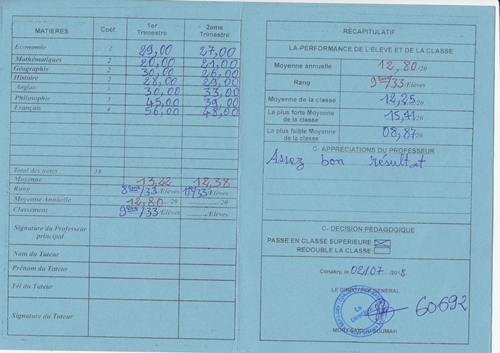 MATIERES Coéf. 1er Trimestre 2eme Trimestre
Economie 2 29,00 27,00
Mathématiques 2 20,00 21,00
Géographie 2 30,00 26,00
Histoire 2 28,00 29,00
Anglais 30,00 33,00
Philosophie 45,00 39,00
Français 4 56,00 48,00
Total des notes 18
Moyenne 13,22 12,38
Rang 8ème/33 Elèves 11è/33 Elèves
Moyenne Annuelle 12,80 /20 /20
Classement 9ème/33 Elèves /Elèves
Signature du Professeur
principal
Nom du Tuteur
Prénom du Tuteur
Tél du Tuteur
Signature du Tuteur
RÉCAPITULATIF
LA-PERFORMANCE DE L'ELEVE ET DE LA CLASSE
Moyenne annuelle 12,80 /20
Rang 9ème/33 Elèves
Moyenne de la classe 12,25 /20
La plus forte Moyenne
de la classe 15,41 /20
La plus faible Moyenne
de la classe 08,87 /20
C- APPRÉCIATIONS DU PROFESSEUR
Assez bon résultat
C- DECISION PEDAGOGIQUE
PASSE EN CLASSE SUPERIEURE
REDOUBLE LA CLASSE
Conakry, le 02/07 /2018
LE DIRECTEUR GENERAL
Le Directeur
60692
SOUMAH